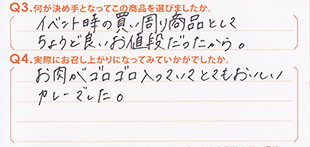 Q3.何が決め手となってこの商品を選びましたか。
イベント時の買い周り商品として
ちょうど良いお値段だったから。
Q4.実際にお召し上がりになってみていかがでしたか。
お肉がゴロゴロ入っていてとてもおいしい
カレーでした。